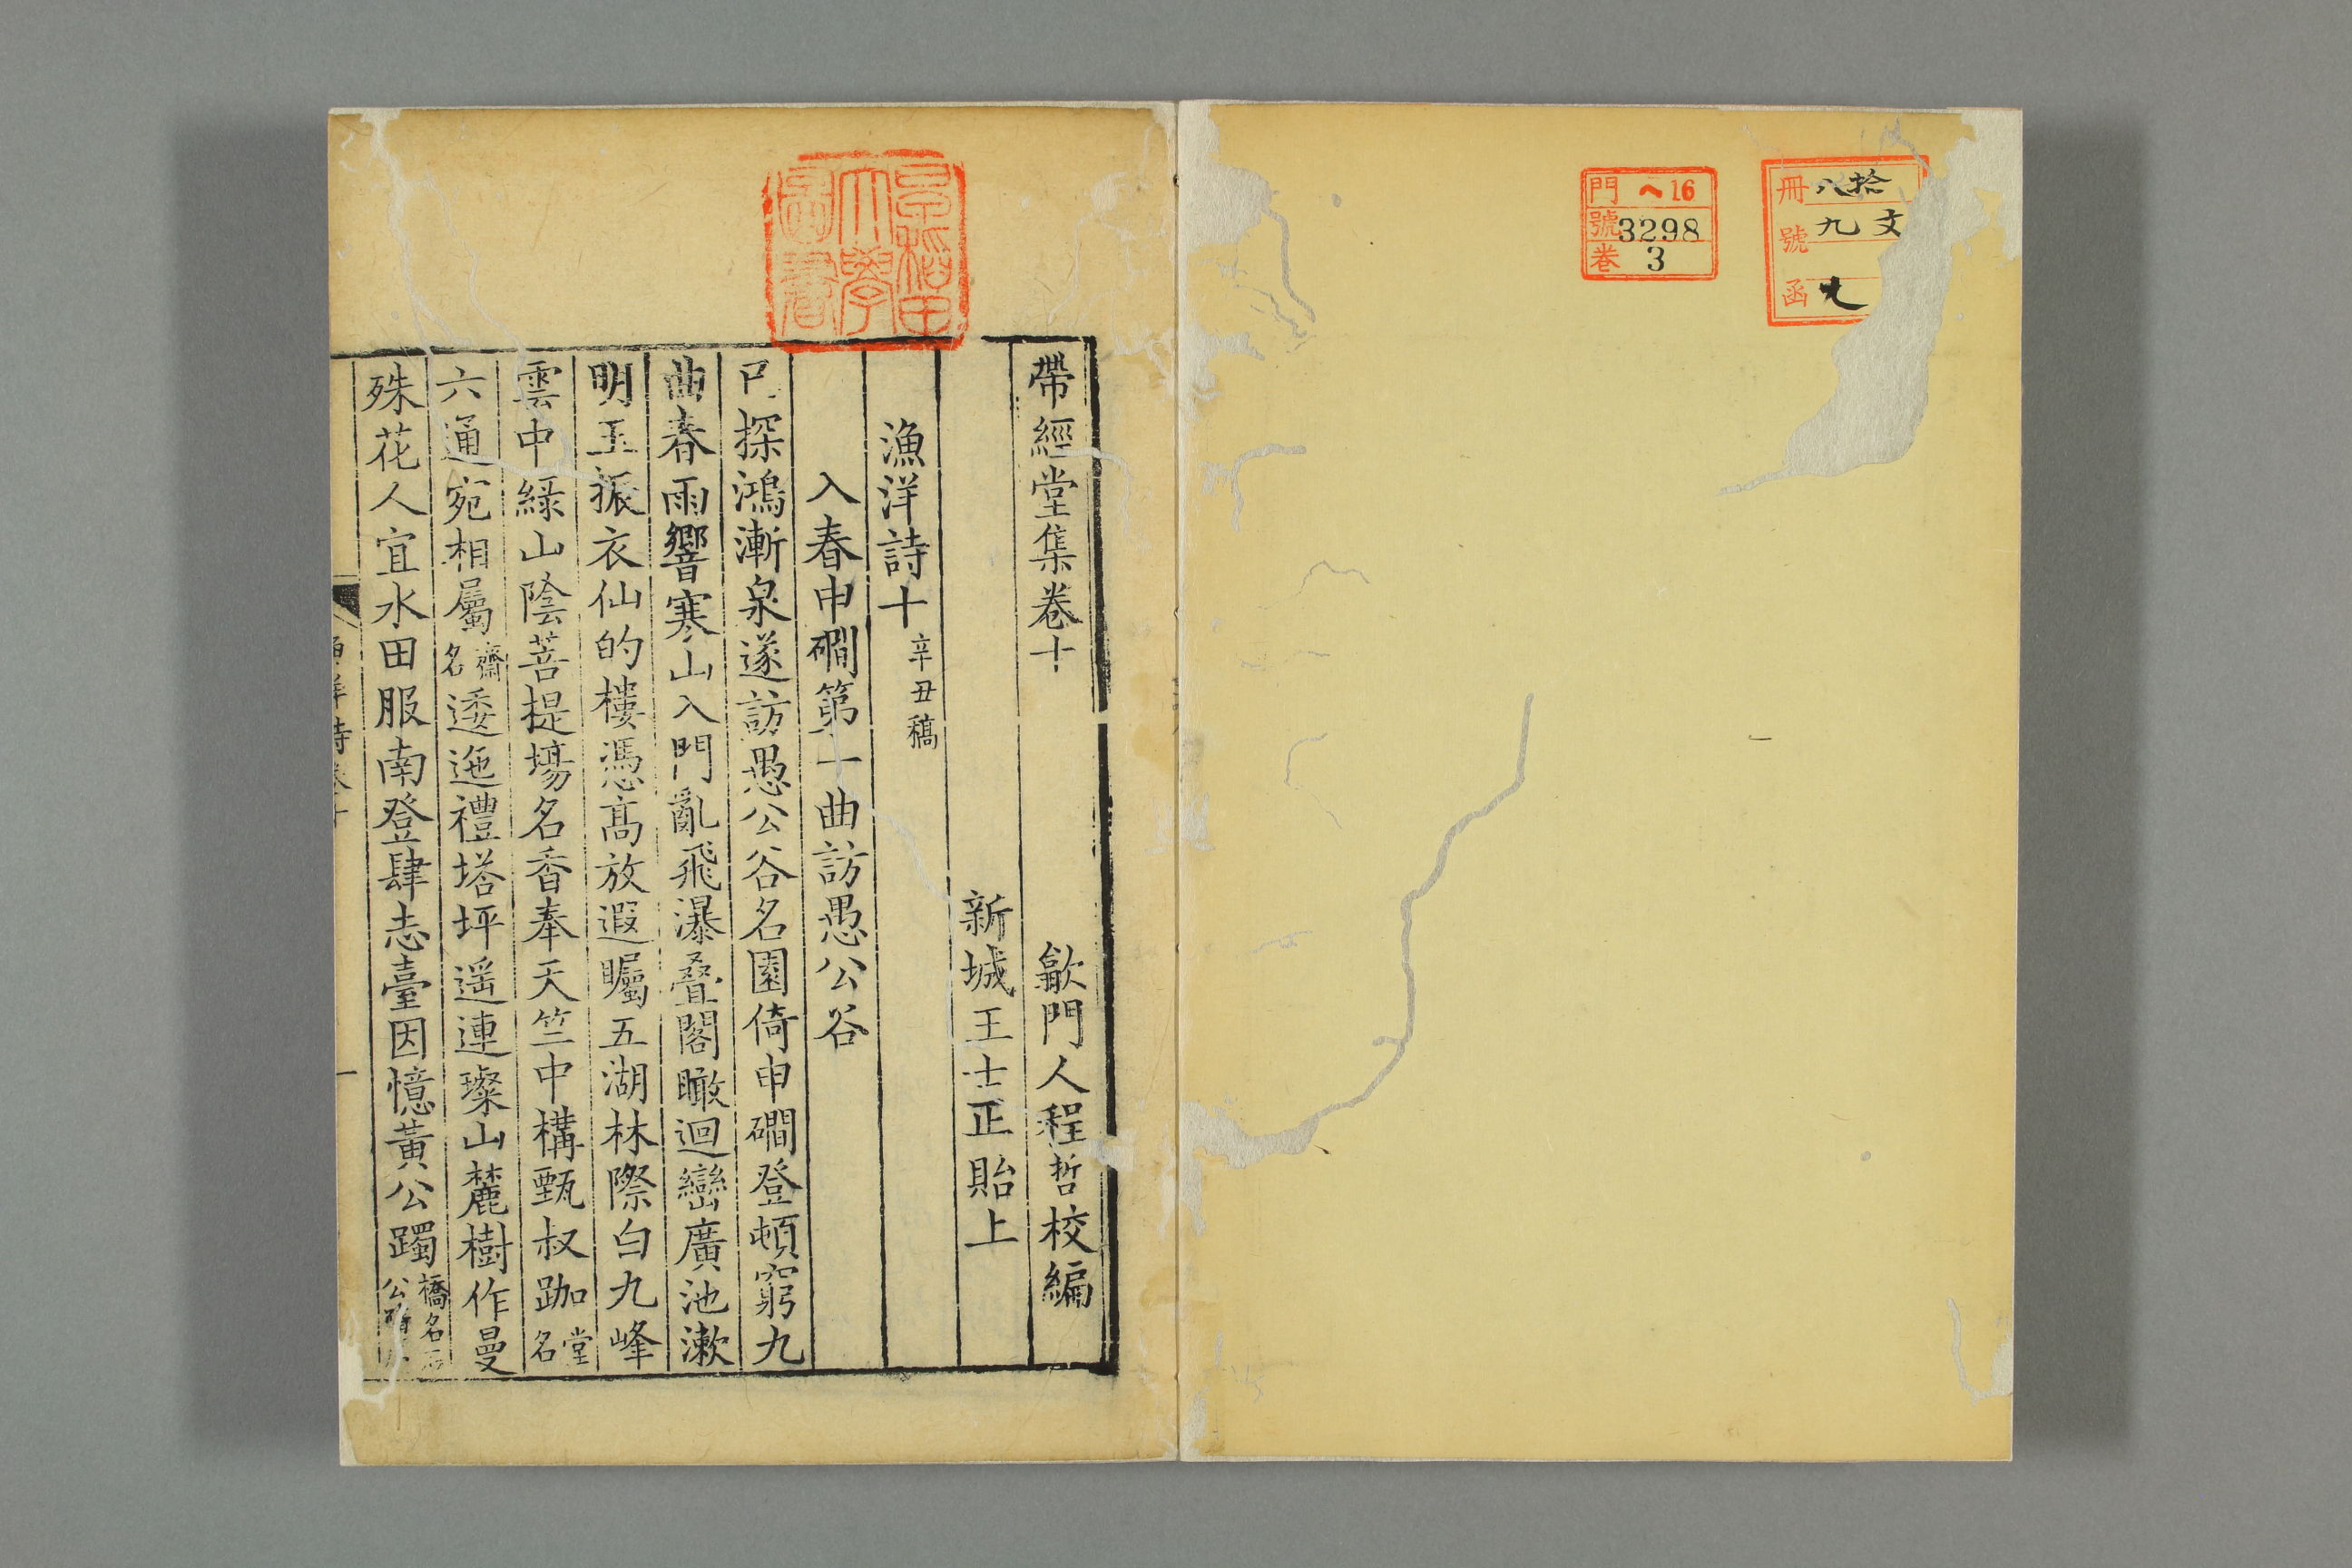 冊 八拾
號 九文
函
門 ヘ16
號 3298
卷 3
早稻田
大學
圖書
帶經堂集卷十
歙門人程哲校編
新城王士正貽上
漁洋詩十 辛丑稿
入春申磵第十曲訪愚公谷
探鴻漸泉遂訪愚公谷名園倚申磵登頓窮九
曲春雨響寒山入門亂飛瀑叠閣瞰迴巒廣池漱
明玉振衣仙的樓憑高放遐矚五湖林際白九峰
雲中綠山陰菩提場名香奉天竺中構甄叔跏堂名
六通宛相屬齋名逶迤禮塔坪遥連璨山麓樹作曼
殊花人宜水田服南登肆志臺因憶黃公躅橋名
公
洋詩卷十
一